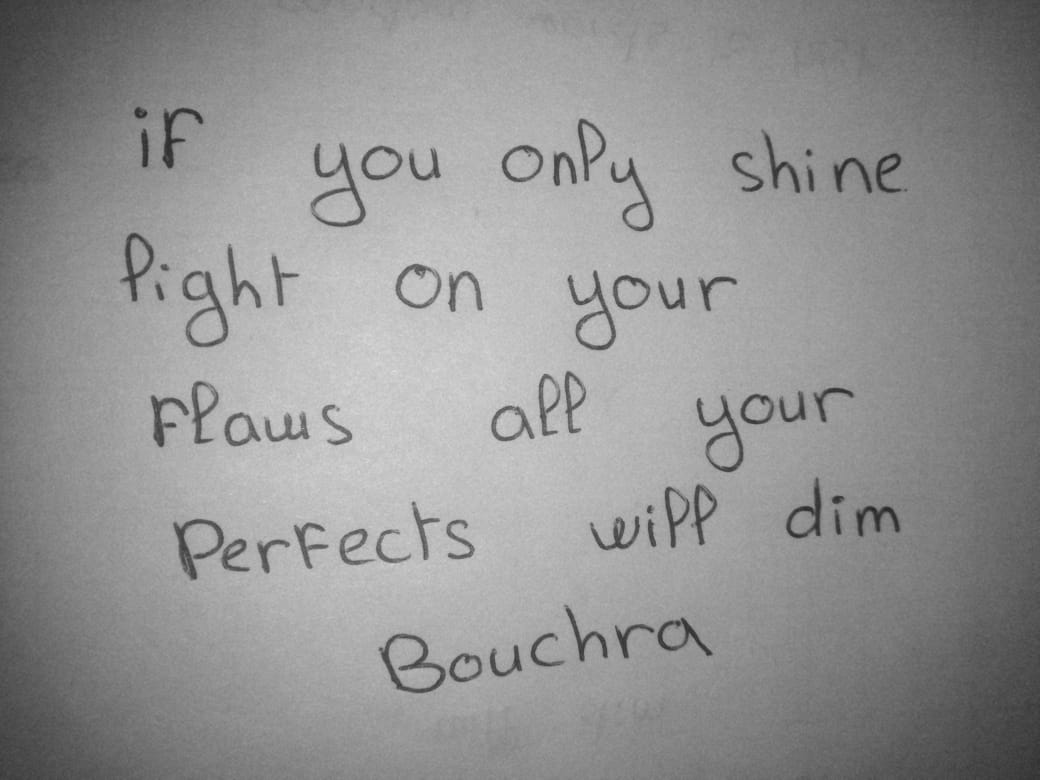 if you only shine
light on your
Flaws all your
Perfects will dim
Bouchra